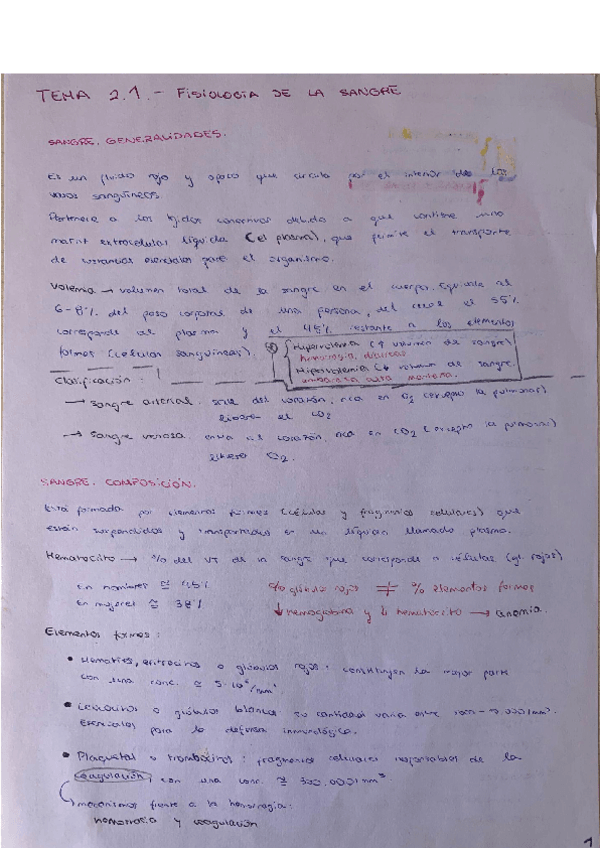 TEMA 2.1.- FISIOLOGÍA DE LA SANGRE
SANGRE. GENERALIDADES.
Es un fluido rojo y opaco que circula por el interior de los
vasos sanguíneos.
Pertenece a los tejidos conectivos debido a que contiene una
matriz extracelular líquida (el plasma), que permite el transporte
de sustancias esenciales para el organismo.
Volemia → volumen total de la sangre en el cuerpo. Equivale al
6-8% del peso corporal de una persona, del cual el 55%
corresponde al plasma y el 45% restante a los elementos
formes (células sanguíneas).
Hipovolemia (↓ volumen de sangre)
hemorragia, diuréticos
Hipervolemia (↑ volumen de sangre)
Clasificación:
→ sangre arterial. sale del corazón, rica en O2 (excepto la pulmonar)
el CO2
→ sangre venosa. entra al corazón, rica en CO2 (excepto la pulmonar)
libera O2.
SANGRE. COMPOSICIÓN.
Está formada por elementos formes (células y fragmentos celulares) que
están suspendidos y transportados en un líquido llamado plasma.
Hematocrito → % del VT de la sangre que corresponde a células (gl. rojos)
En hombres ≅ 45%
En mujeres ≅ 38%
% glóbulos rojos ≠ % elementos formes
↓ hemoglobina y ↓ hematocrito → anemia.
Elementos formes:
• Hematíes, eritrocitos o glóbulos rojos: constituyen la mayor parte
con una conc. ≅ 5·10⁶/mm³
• Leucocitos o glóbulos blancos: su cantidad varía entre
Esenciales para la defensa inmunológica.
• Plaquetas o trombocitos: fragmentos celulares responsables de la
coagulación, con una conc. ≅ 300.000/mm³
mecanismos frente a la hemorragia:
hemostasia y coagulación
1